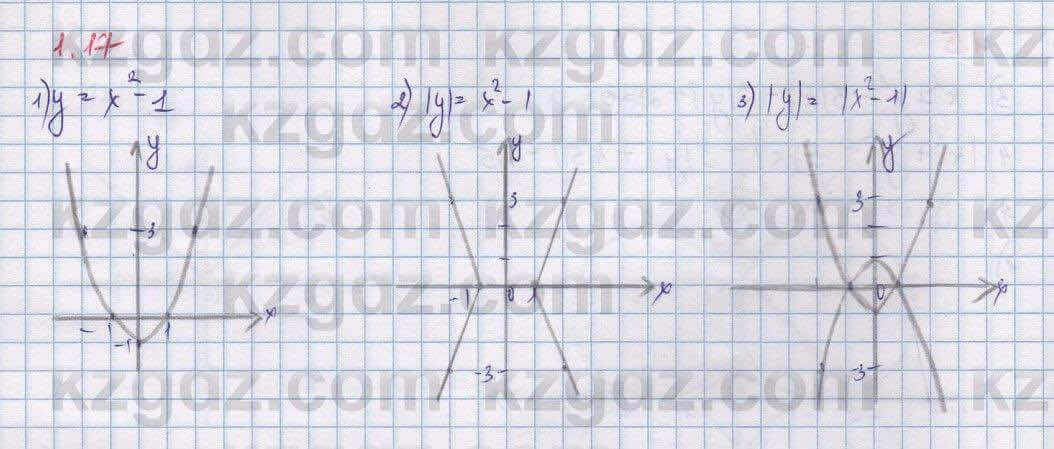 1.17
1) y = x² - 1
2) |y| = x² - 1
3) |y| = |x² - 1|
y
3
-1
1
-1
x
y
3
-1
0
1
x
-3
y
3
0
x
-3
kzgdz.com kzgdz.com kz
kzgdz.com
kzgdz.com kzgdz.com kz
kzgdz.com
kzgdz.com kzgdz.com kz